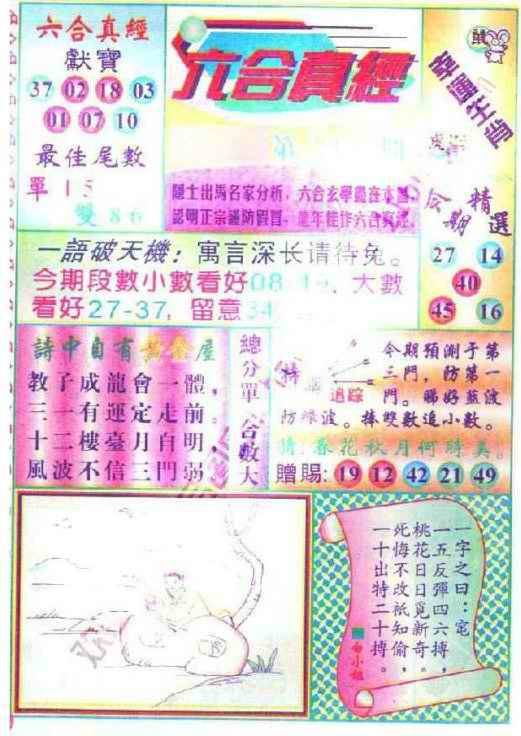 六合真經
獻寶
37 02 18 03
01 07 10
最佳尾數
單 1 5
雙 8 6
六合真經
隱士出馬名家分析，六合玄學盡在本
認明正宗謹防假冒，龍年佳作六合真經
鼠
幸運生肖
虎
期 精選
27 14
40
45 16
一語破天機：寓言深长请待兔。
今期段數小數看好08-1 、大數
看好27-37，留意34
詩中自有黃金屋
教子成龍會一體，
三一有運定走前。
十二樓臺月自明，
風波不信三門弱。
總分單、合數大
特 追踪
今期預測于第
三門，防第一
門。睇好藍波
防綠波。捧雙數追小數。
猜：春花秋月何時美。
贈賜：19 12 42 21 49
一字之曰：宅
一五反彈四六搏，
桃花日日覓新奇，
死悔不改祗知偷，
一十出特二十搏。
白小姐